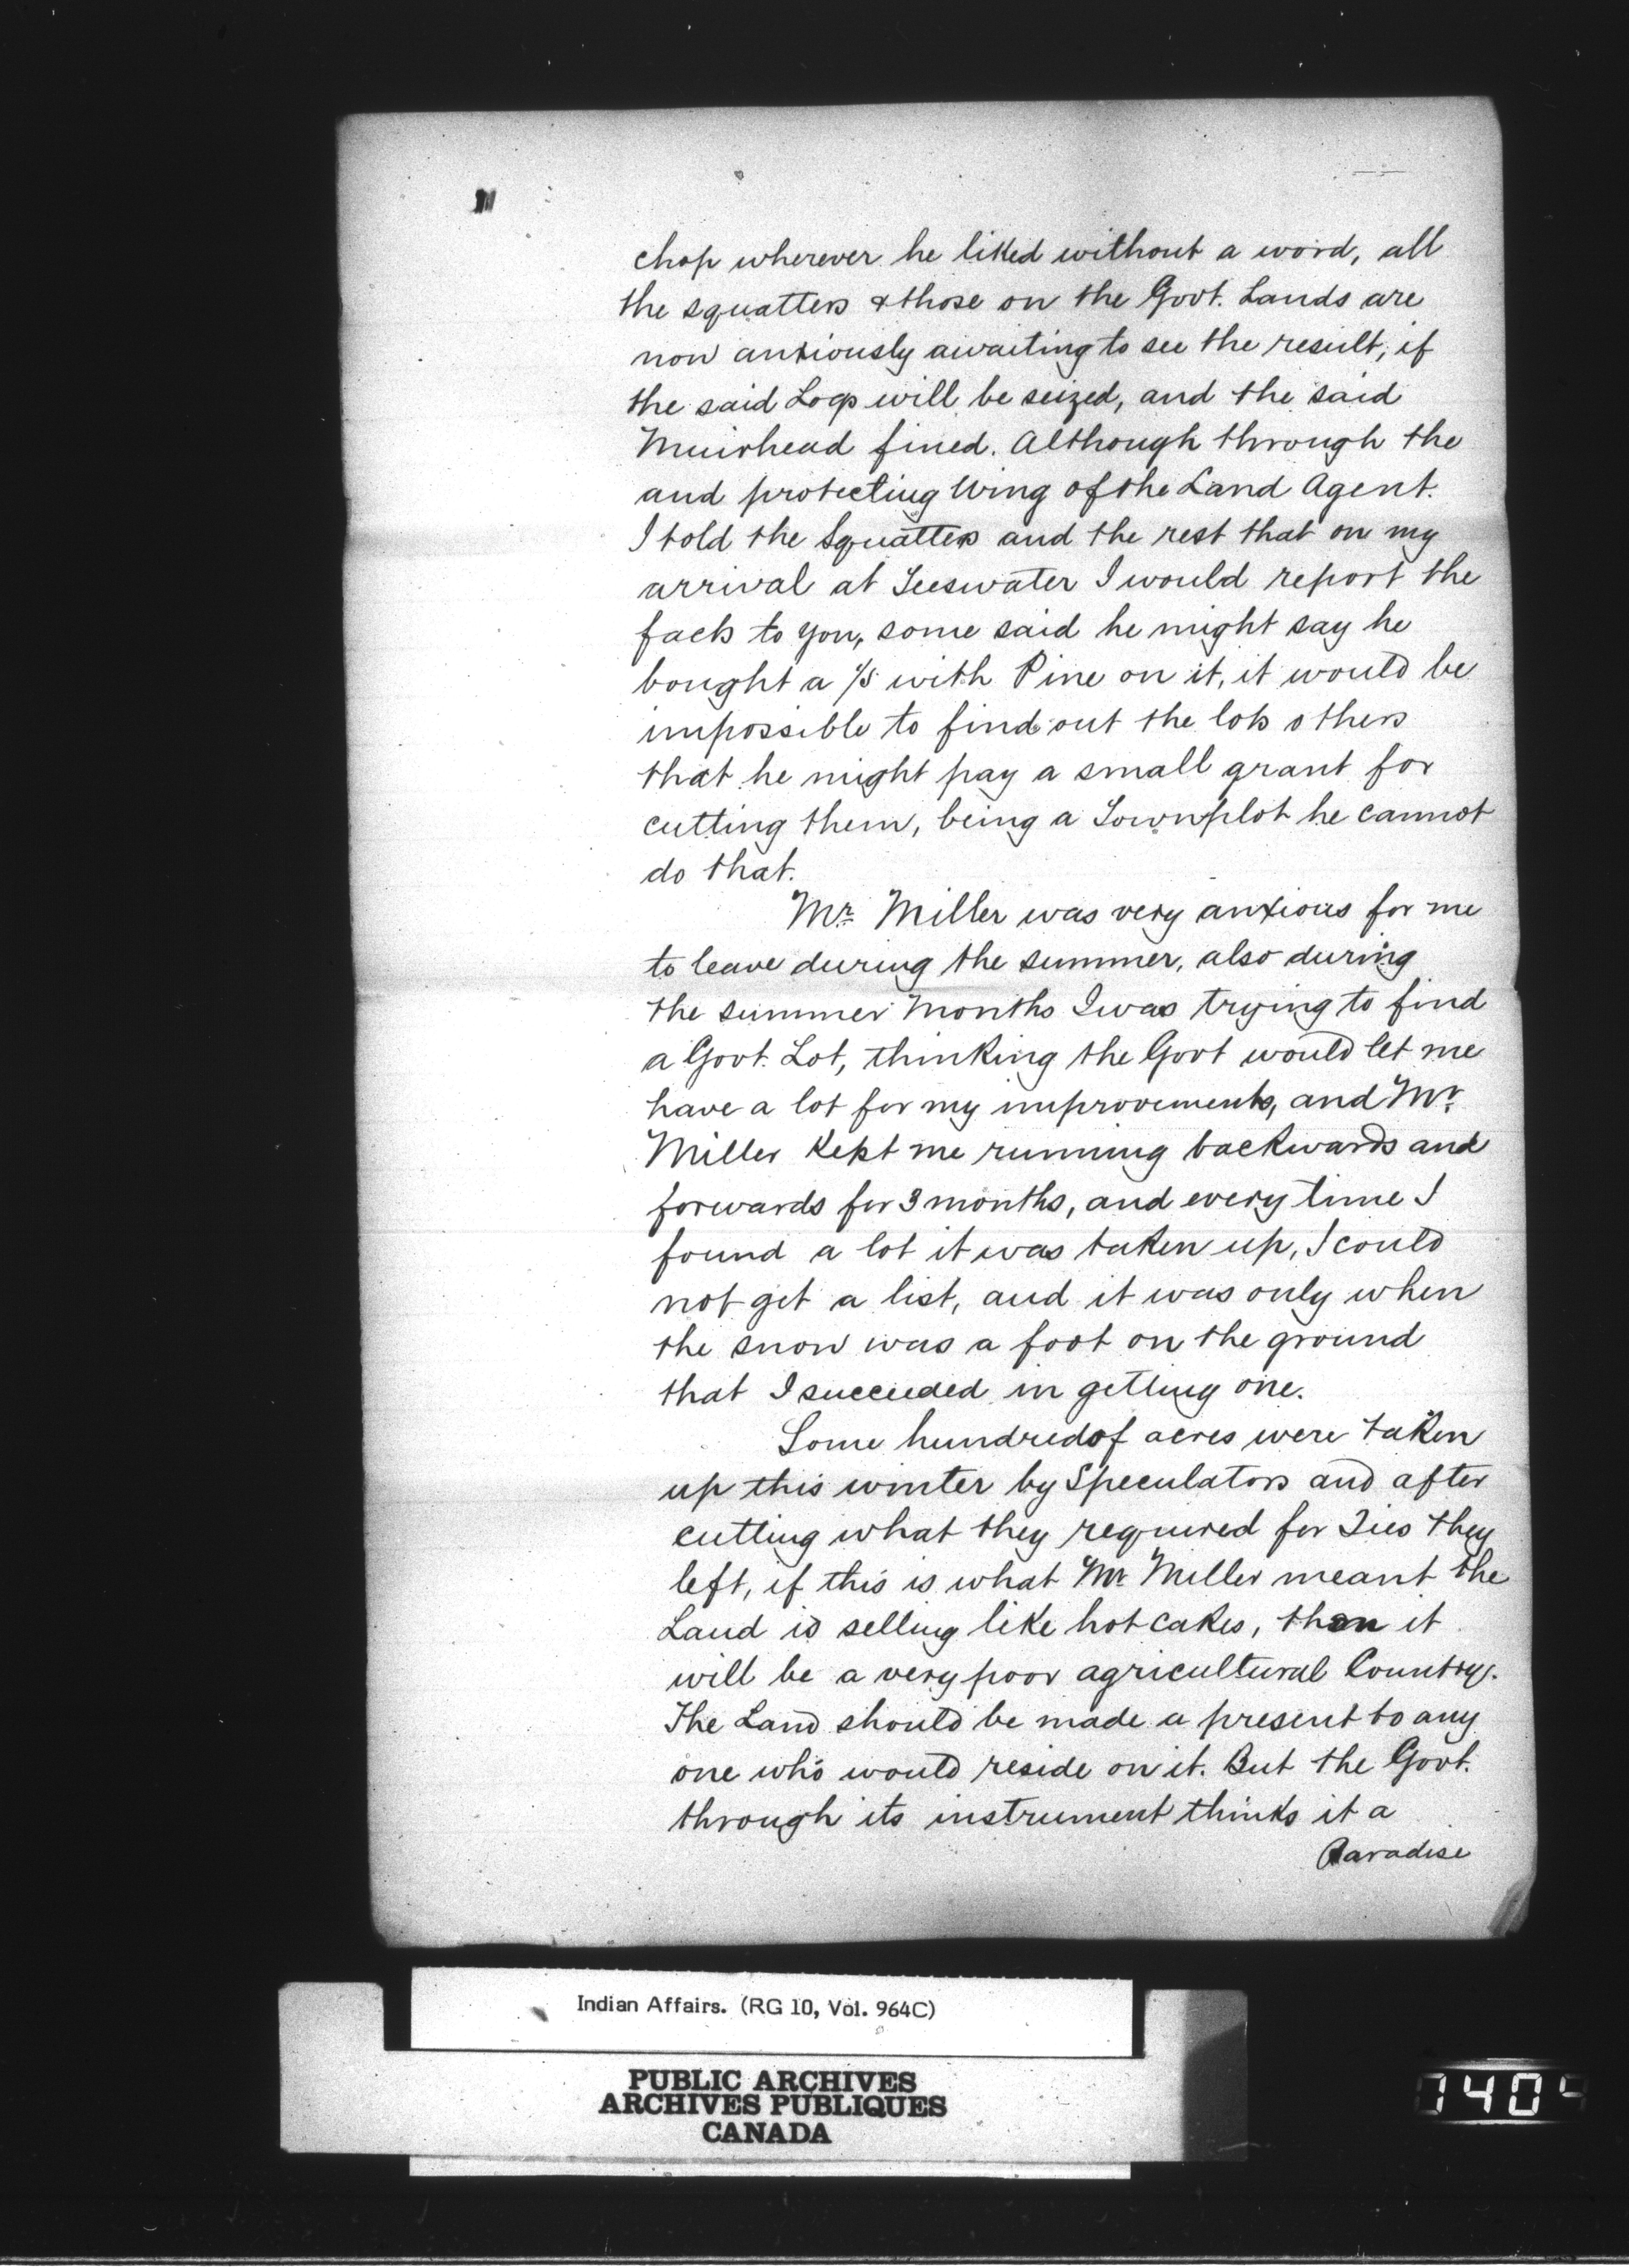 chop wherever he liked without a word, all
the squatters & those on the Govt. Lands are
now anxiously awaiting to see the result, if
the said Logs will be seized, and the said
Muirhead fined. Although through the
and protecting Wing of the Land Agent.
I told the Squatters and the rest that on my
arrival at Teeswater I would report the
facts to you, some said he might say he
bought a 1/5 with Pine on it, it would be
impossible to find out the lots others
that he might pay a small grant for
cutting them, being a Townplot he cannot
do that.
Mr. Miller was very anxious for me
to leave during the summer, also during
the summer Months I was trying to find
a Govt. Lot, thinking the Govt would let me
have a lot for my improvements, and Mr.
Miller Kept me running backwards and
forwards for 3 months, and every time I
found a lot it was taken up, I could
not get a list, and it was only when
the snow was a foot on the ground
that I succeeded in getting one.
Some hundreds of acres were taken
up this winter by Speculators and after
cutting what they required for Ties they
left, if this is what Mr Miller meant the
Land is selling like hot cakes, then it
will be a very poor agricultural Country.
The Land should be made a present to any
one who would reside on it. But the Govt.
through its instrument thinks it a
Paradise
Indian Affairs. (RG 10, Vol. 964C)
PUBLIC ARCHIVES
ARCHIVES PUBLIQUES
CANADA
1404